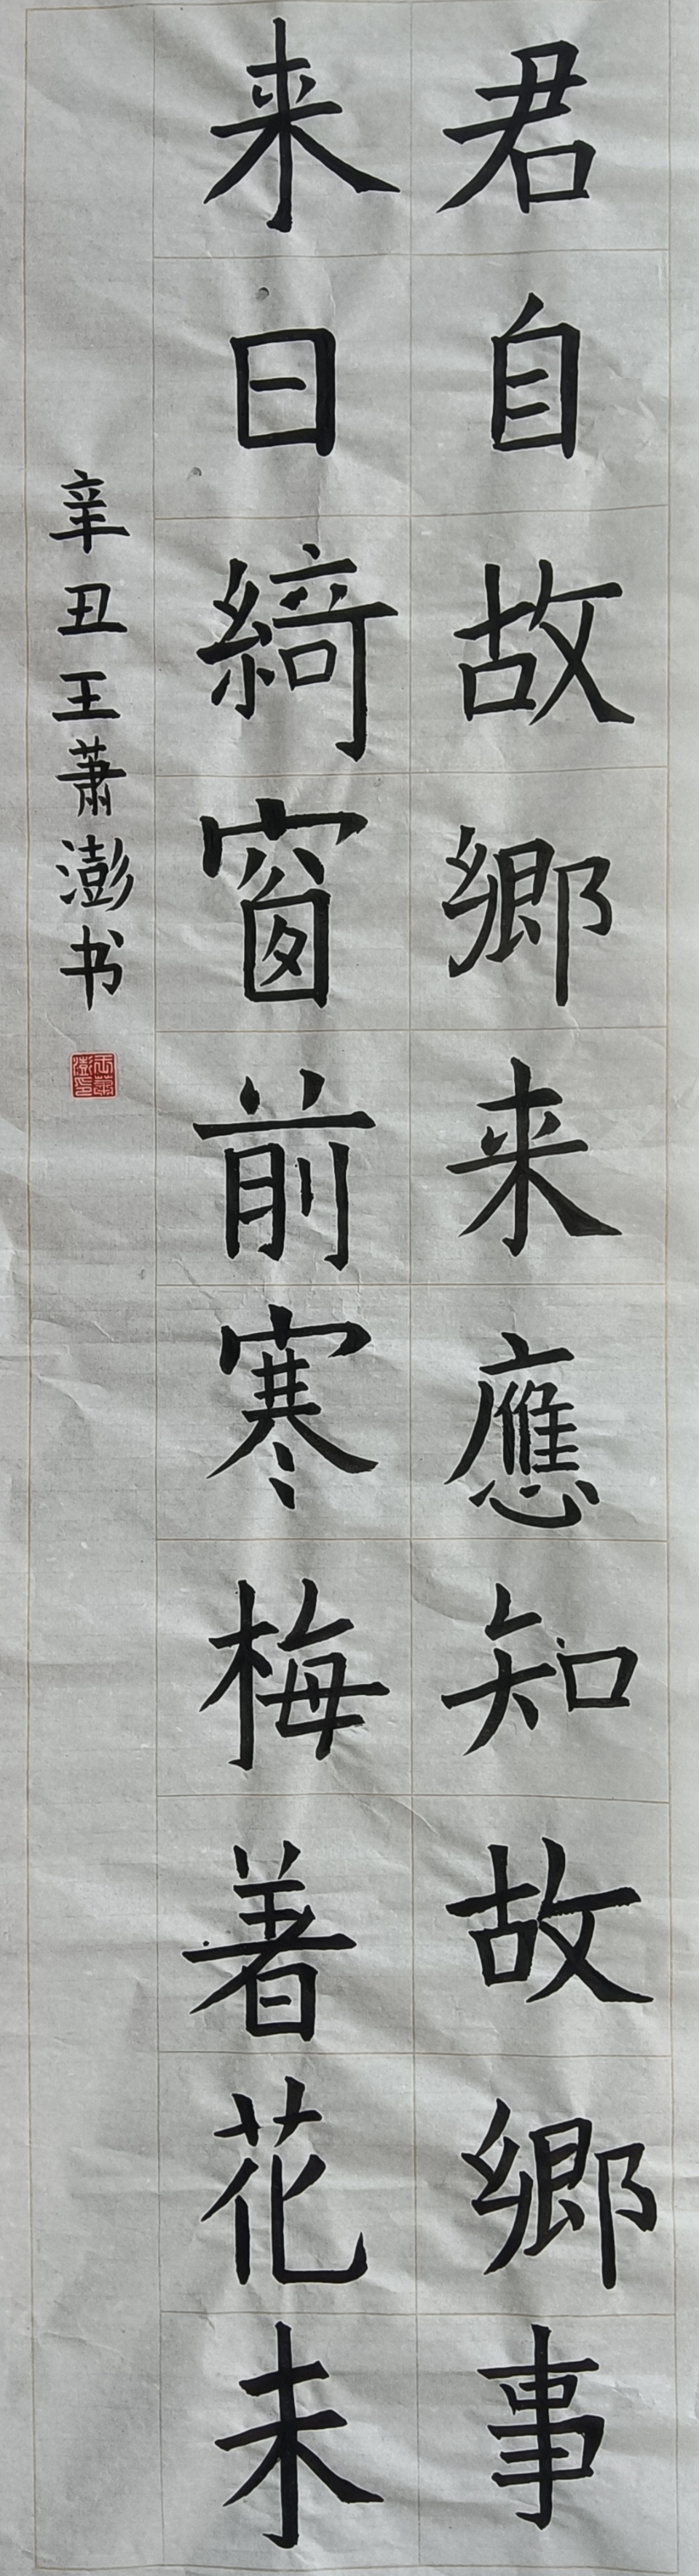 君自故鄉来應知故鄉事
来日綺窗前寒梅着花未
辛丑王萧澎书